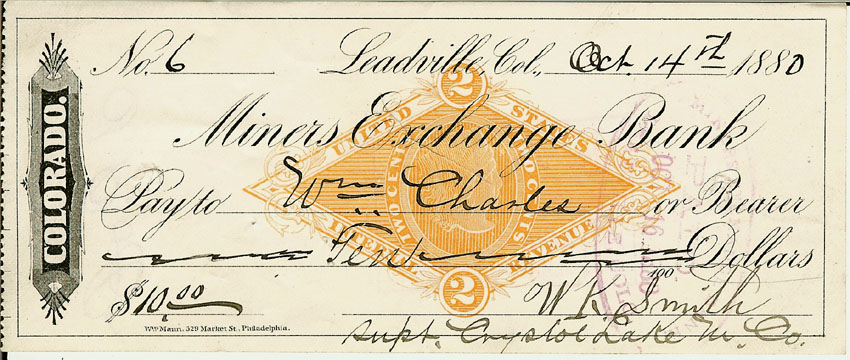 COLORADO.
No. 6 Leadville, Col., Oct. 14th 1880
2
UNITED STATES
Miners Exchange Bank
TWO CENTS TWO CENTS
Pay to Wm Charles or Bearer
INTERNAL REVENUE
Ten 100 Dollars
2
$10.00 W K Smith
Wm Mann, 529 Market St., Philadelphia.
Supt. Crystol Lake M. Co.